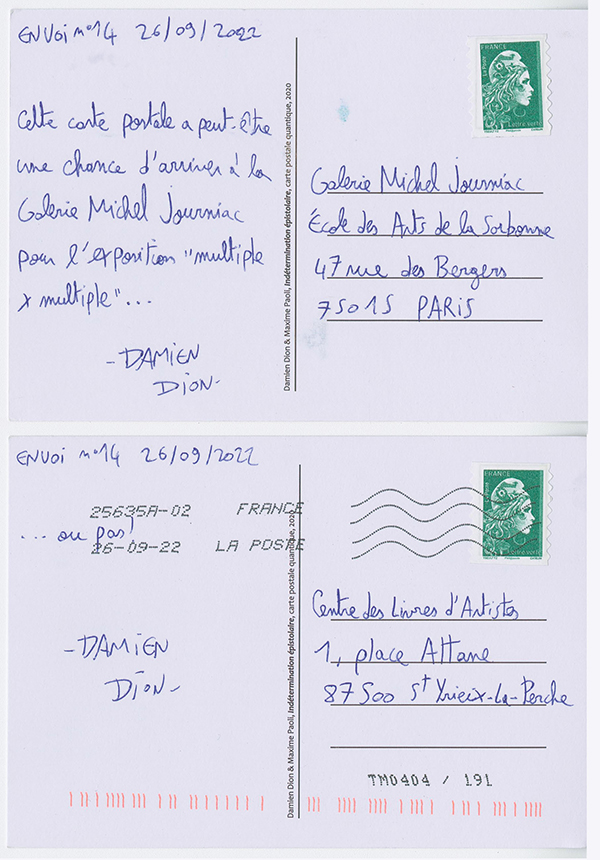 ENVOI n°14 26/09/2022
Cette carte postale a peut-être
une chance d'arriver à la
Galerie Michel Journiac
pour l'exposition "multiple
x multiple"...
-DAMIEN
DION-
Damien Dion & Maxime Paoli, Indétermination épistolaire, carte postale quantique, 2020
FRANCE
La Poste
Lettre verte
Galerie Michel Journiac
École des Arts de la Sorbonne
47 rue des Bergers
75015 PARIS
ENVOI n°14 26/09/2022
25635A-02 FRANCE
... ou pas!
26-09-22 LA POSTE
-DAMIEN
DION-
Damien Dion & Maxime Paoli, Indétermination épistolaire, carte postale quantique, 2020
FRANCE
La Poste
Lettre verte
Centre des Livres d'Artistes
1, place Attane
87500 St Yrieix-La-Perche
TM0404 / 191